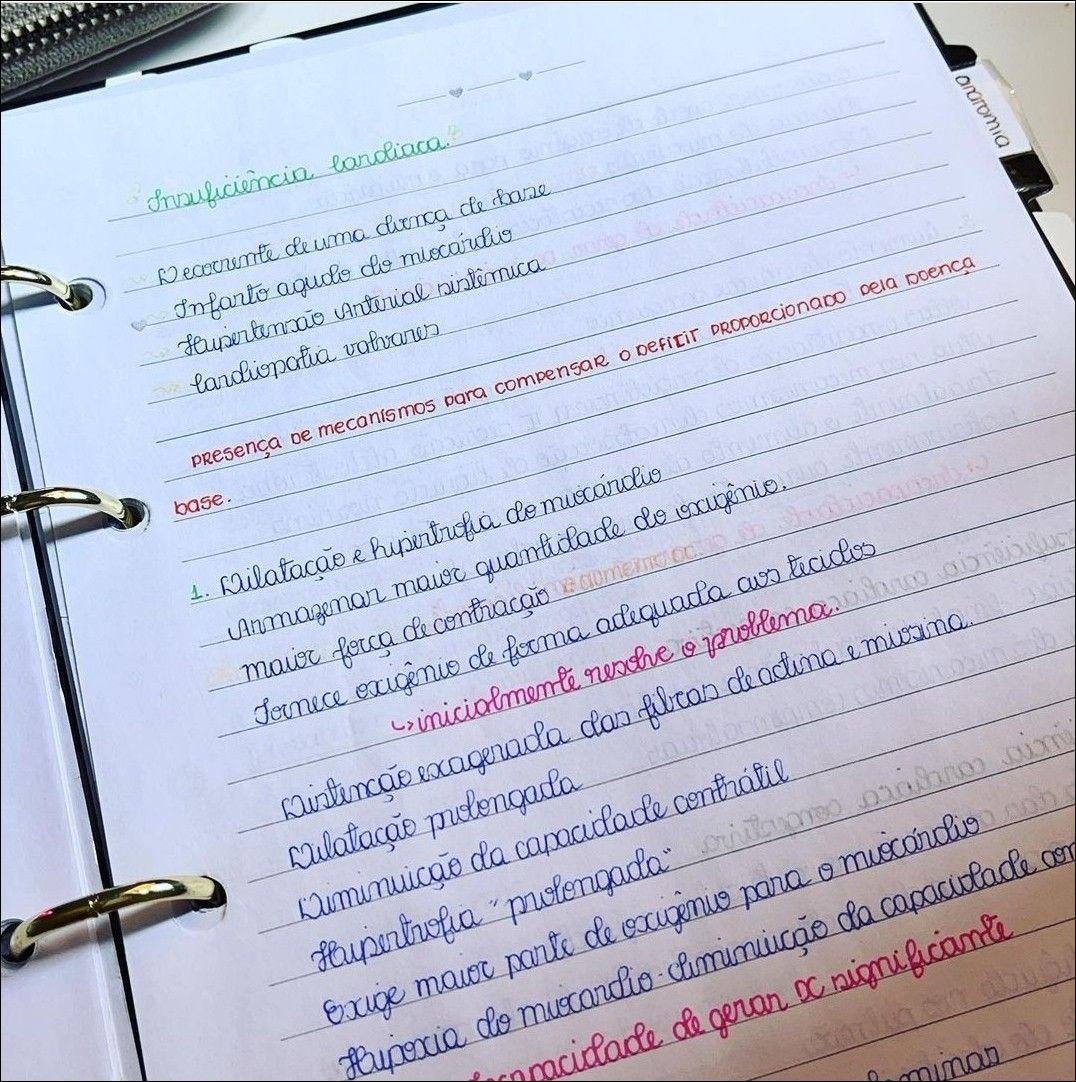 anatomia
Insuficiência Cardiaca.
Decorrente de uma doença de base
Infarto agudo do miocárdio
Hipertensão Arterial sistêmica
Cardiopatia valvares
Presença de mecanismos para compensar o deficit proporcionado pela doença
base.
1. Dilatação e hipertrofia do miocárdio
Armazenar maior quantidade do oxigênio.
maior força de contracção e aumento DC.
Fornece oxigênio de forma adequada aos tecidos
↳ inicialmente resolve o problema.
Distenção exagerada das fibras de actina e miosina.
Dilatação prolongada
Diminuição da capacidade contrátil
Hipertrofia "prolongada"
Exige maior parte de oxigênio para o miocárdio
Hipoxia do miocardio - diminuição da capacidade con
capacidade de gerar DC significante